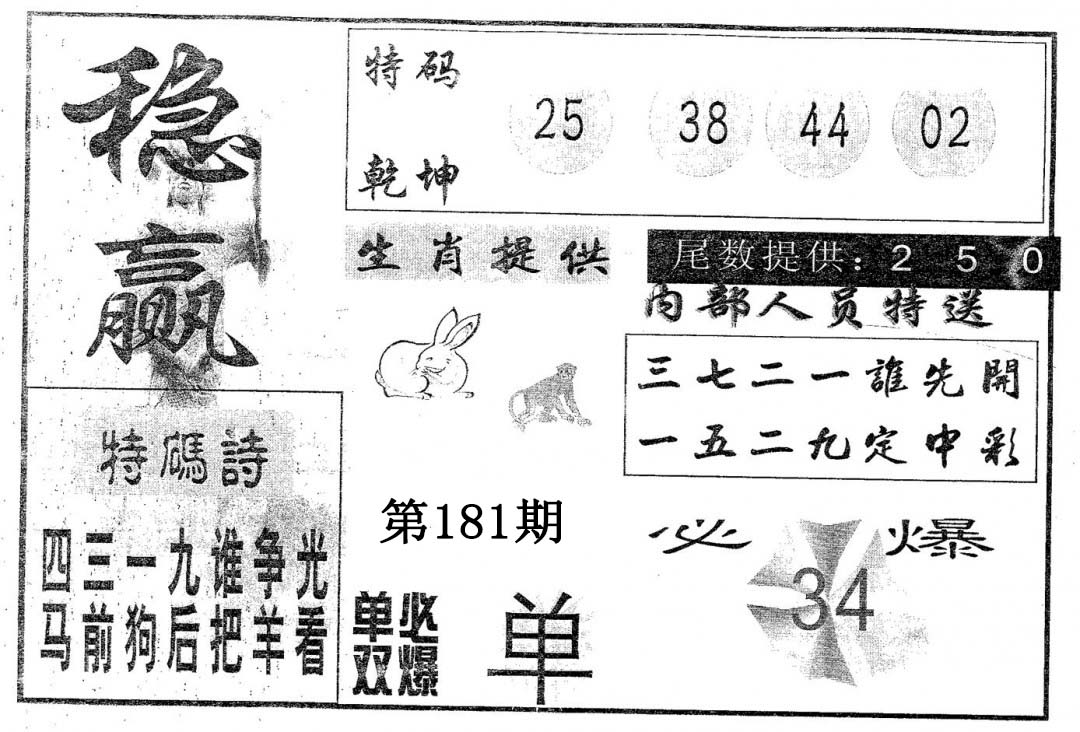 稳
赢
特码
乾坤
25 38 44 02
生肖提供
尾数提供：2 5 0
内部人员特送
三七二一誰先開
一五二九定中彩
特碼詩
四三一九谁争光
马前狗后把羊看
第181期
单双
必爆
单
必爆
34